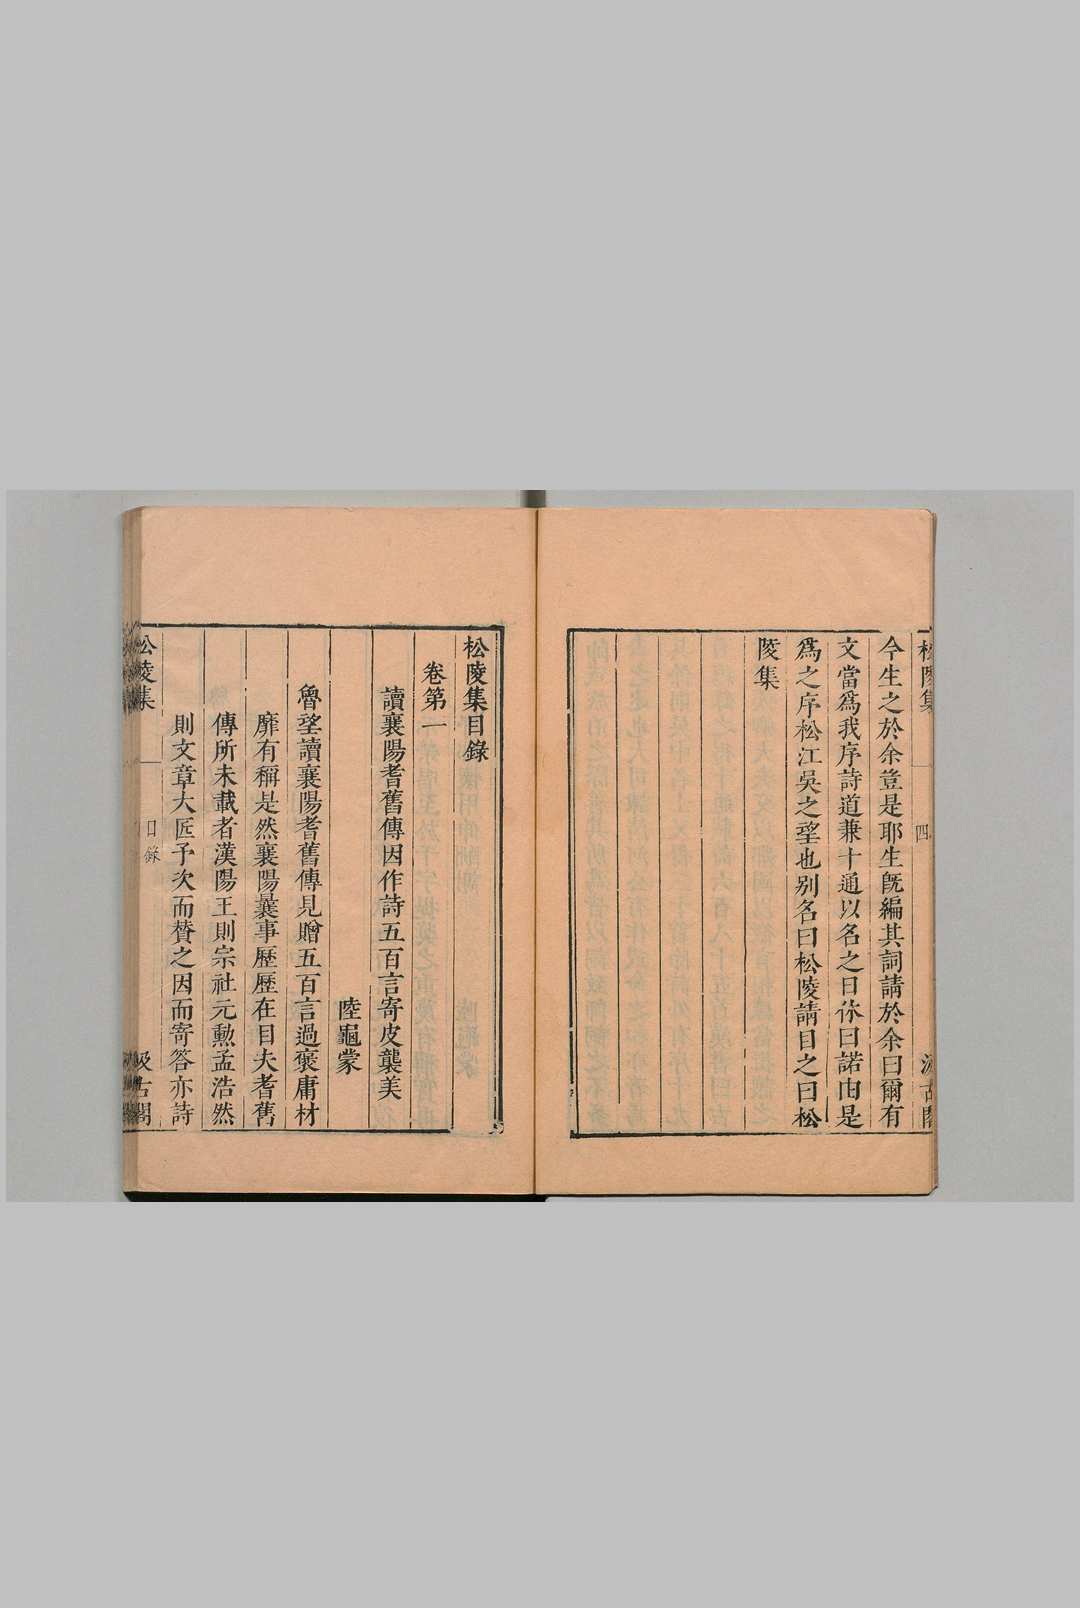 松陵集
四
汲古閣
今生之於余豈是耶生旣編其詞請於余曰爾有
文當爲我序詩道兼十通以名之日休曰諾由是
爲之序松江吳之望也别名曰松陵請目之曰松
陵集
松陵集目錄
卷第一
讀襄陽耆舊傳因作詩五百言寄皮襲美
陸龜蒙
魯望讀襄陽耆舊傳見贈五百言過褒庸材
靡有稱是然襄陽曩事歷歷在目夫耆舊
傳所未載者漢陽王則宗社元勲孟浩然
則文章大匠予次而賛之因而寄答亦詩
松陵集
目錄
汲古閣